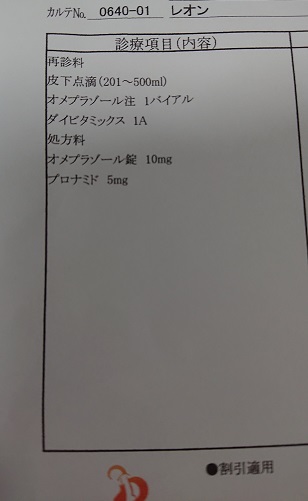 カルテNo. 0640-01 レオン
診療項目(内容)
再診料
皮下点滴(201～500ml)
オメプラゾール注 1バイアル
ダイビタミックス 1A
処方料
オメプラゾール錠 10mg
プロナミド 5mg
●割引適用